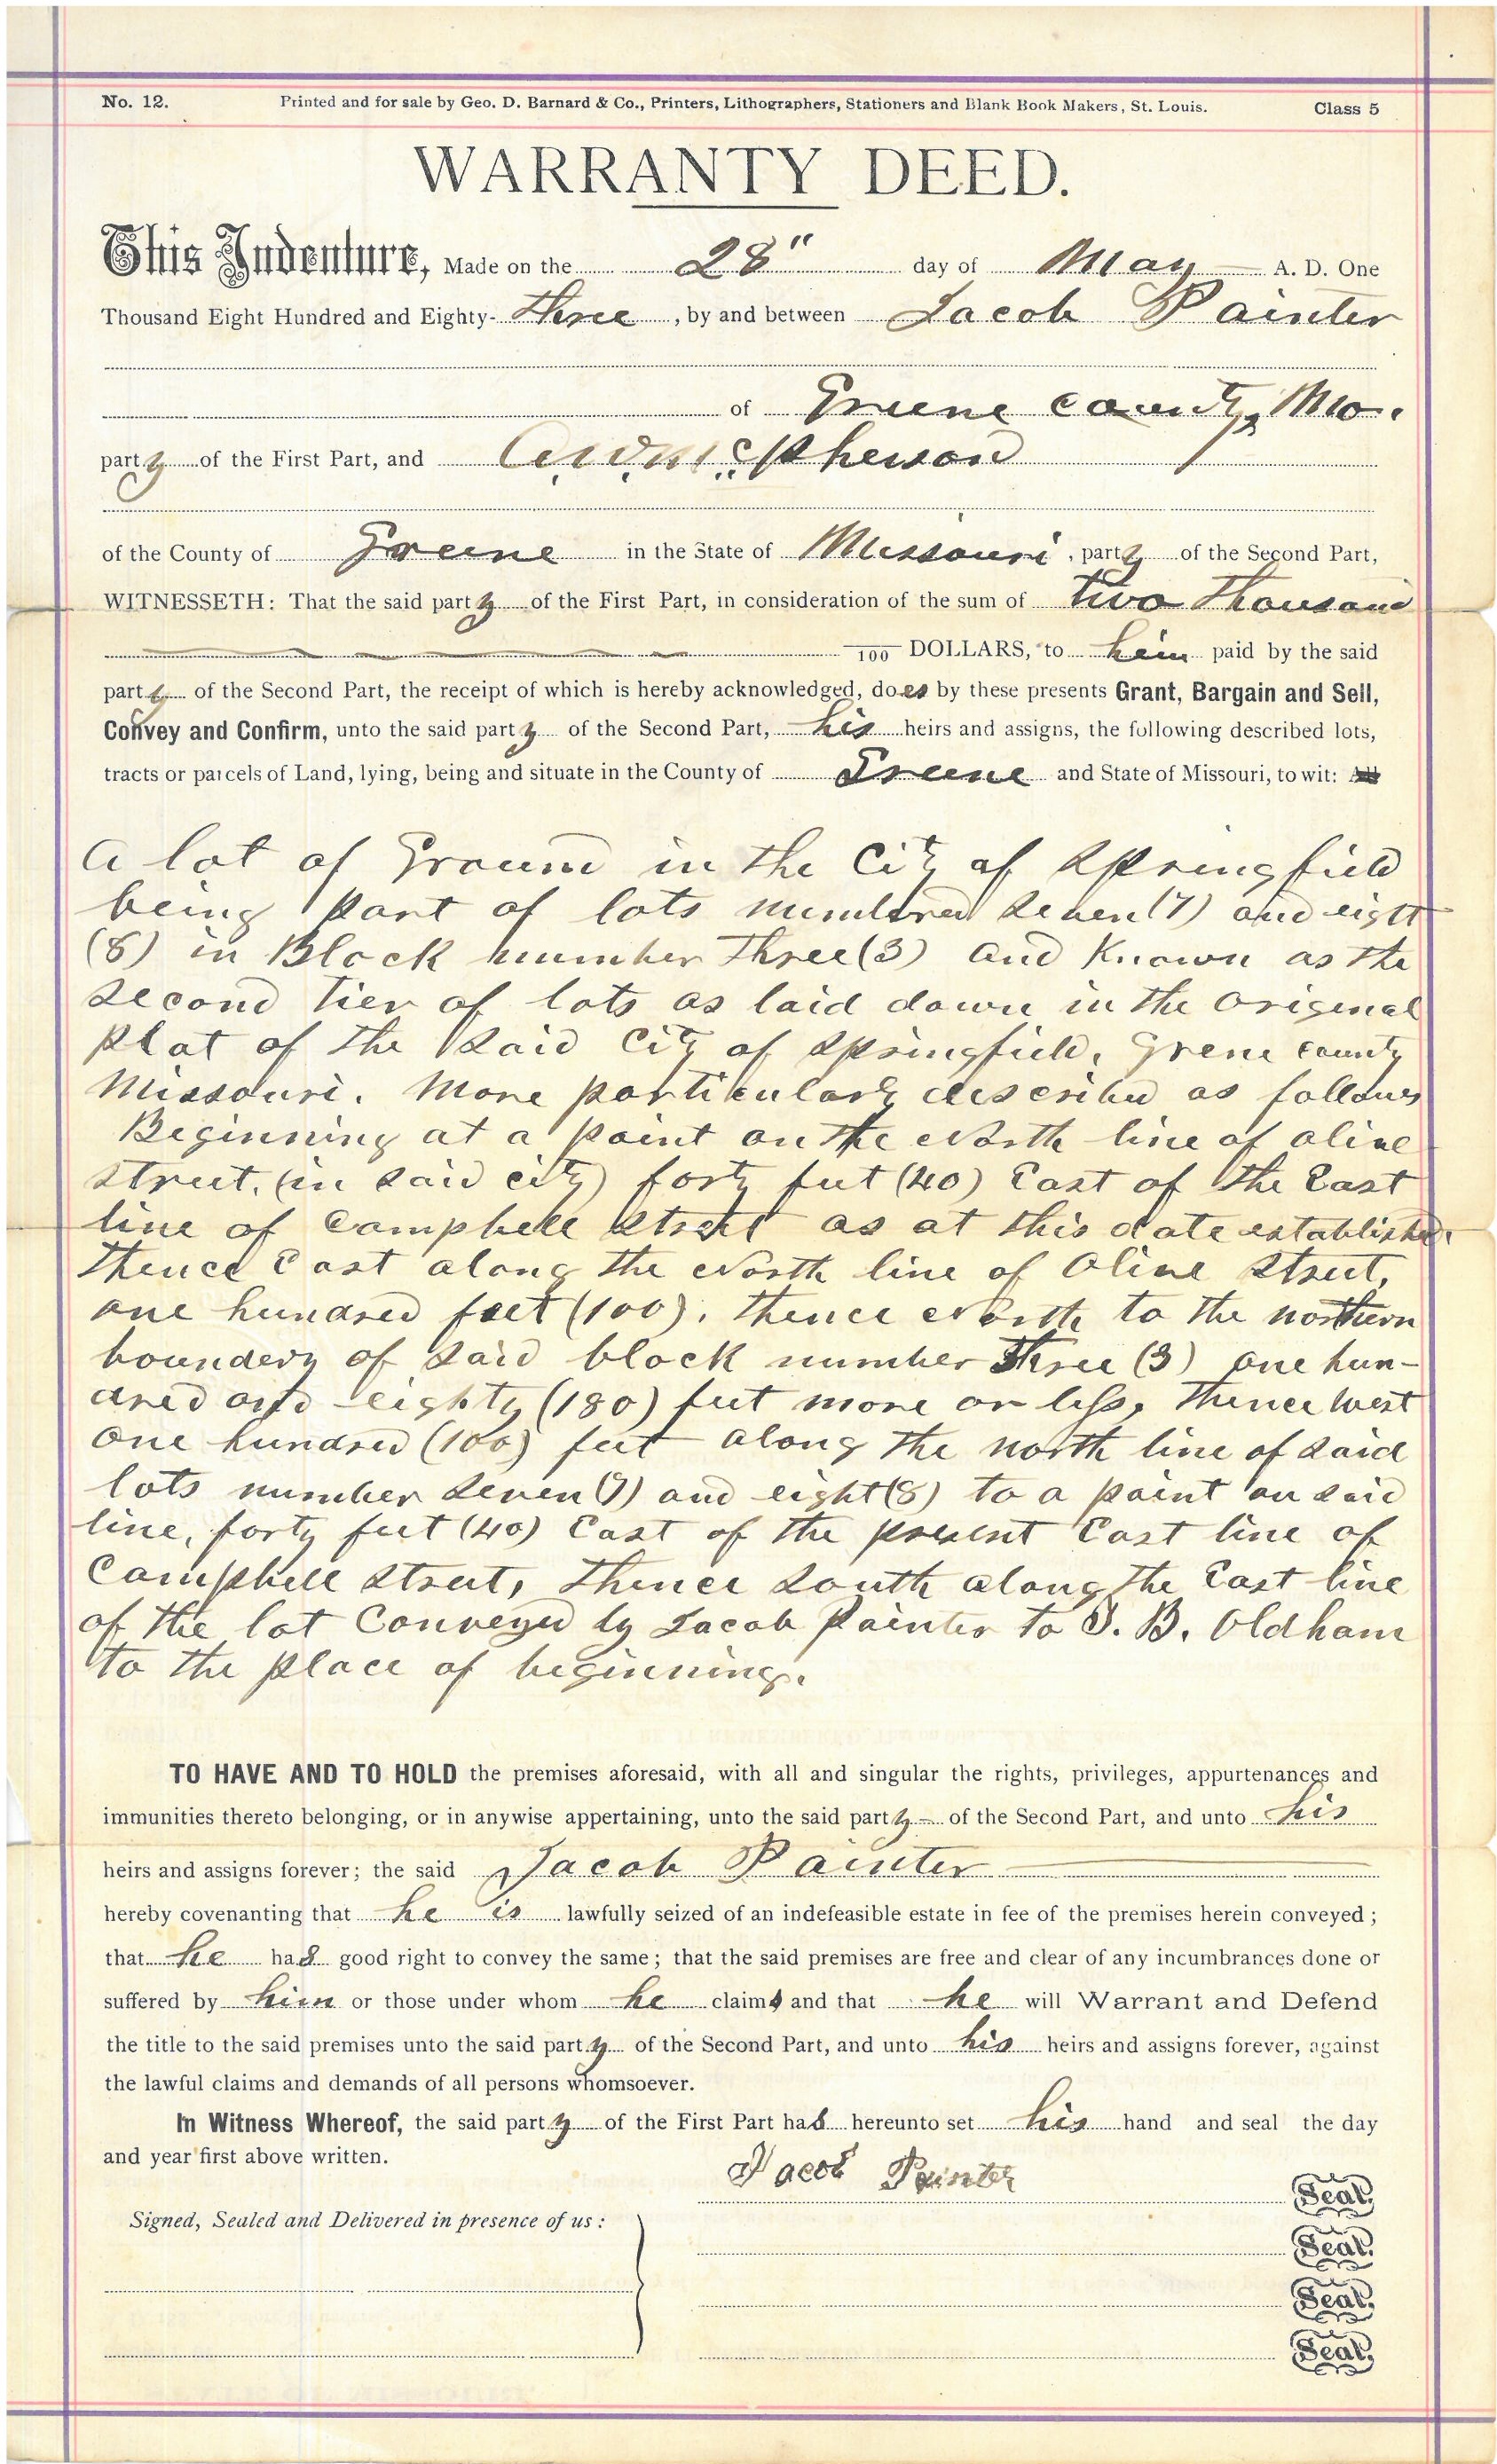 No. 12. Printed and for sale by Geo. D. Barnard & Co., Printers, Lithographers, Stationers and Blank Book Makers, St. Louis. Class 5
WARRANTY DEED.
This Indenture, Made on the 28" day of May A. D. One
Thousand Eight Hundred and Eighty-three, by and between Jacob Painter
of Greene county, Mo.
party of the First Part, and McPherson
of the County of Greene in the State of Missouri, party of the Second Part,
WITNESSETH: That the said party of the First Part, in consideration of the sum of two thousand
/100 DOLLARS, to him paid by the said
party of the Second Part, the receipt of which is hereby acknowledged, does by these presents Grant, Bargain and Sell,
Convey and Confirm, unto the said party of the Second Part, his heirs and assigns, the following described lots,
tracts or parcels of Land, lying, being and situate in the County of Greene and State of Missouri, to wit: All
A lot of Ground in the City of Springfield
being part of lots numbered seven (7) and eight
(8) in Block number three (3) and Known as the
second tier of lots as laid down in the original
plat of the said City of Springfield, Grene county
Missouri. More particularly described as follows
Beginning at a point on the North line of olive
street, (in said city) forty feet (40) East of the East
line of Campbell street as at this date established.
thence East along the North line of Olive street,
one hundred feet (100). thence North to the northern
boundery of said block number three (3) one hun-
dred and eighty (180) feet more or less, thence west
one hundred (100) feet along the north line of said
lots number seven (7) and eight (8) to a point on said
line, forty feet (40) East of the present East line of
Campbell street, thence south along the East line
of the lot Conveyed by Jacob Painter to J. B. Oldham
to the place of beginning.
TO HAVE AND TO HOLD the premises aforesaid, with all and singular the rights, privileges, appurtenances and
immunities thereto belonging, or in anywise appertaining, unto the said party of the Second Part, and unto his
heirs and assigns forever; the said Jacob Painter
hereby covenanting that he is lawfully seized of an indefeasible estate in fee of the premises herein conveyed;
that he has good right to convey the same; that the said premises are free and clear of any incumbrances done or
suffered by him or those under whom he claims and that he will Warrant and Defend
the title to the said premises unto the said party of the Second Part, and unto his heirs and assigns forever, against
the lawful claims and demands of all persons whomsoever.
In Witness Whereof, the said party of the First Part has hereunto set his hand and seal the day
and year first above written.
Jacob Painter Seal.
Signed, Sealed and Delivered in presence of us:
Seal.
Seal.
Seal.